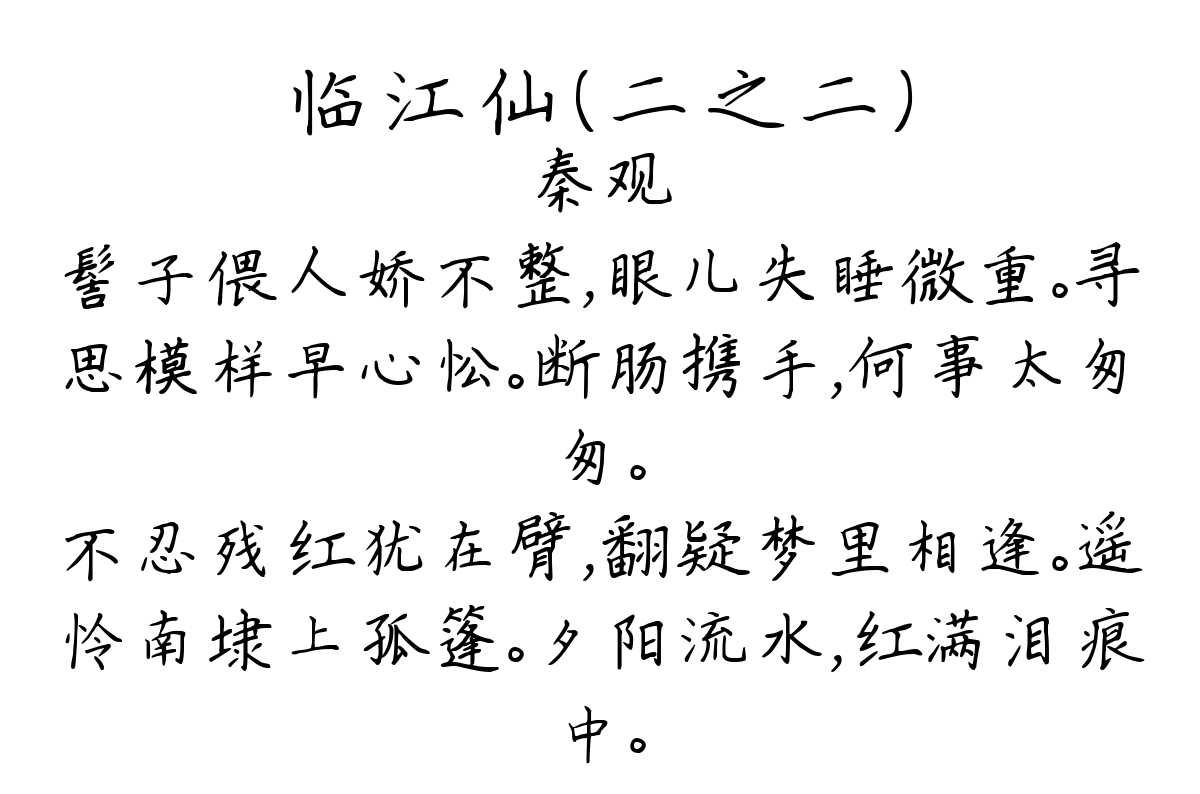 临江仙(二之二)
秦观
髻子偎人娇不整,眼儿失睡微重。寻
思模样早心忪。断肠携手,何事太匆
匆。
不忍残红犹在臂,翻疑梦里相逢。遥
怜南埭上孤篷。夕阳流水,红满泪痕
中。